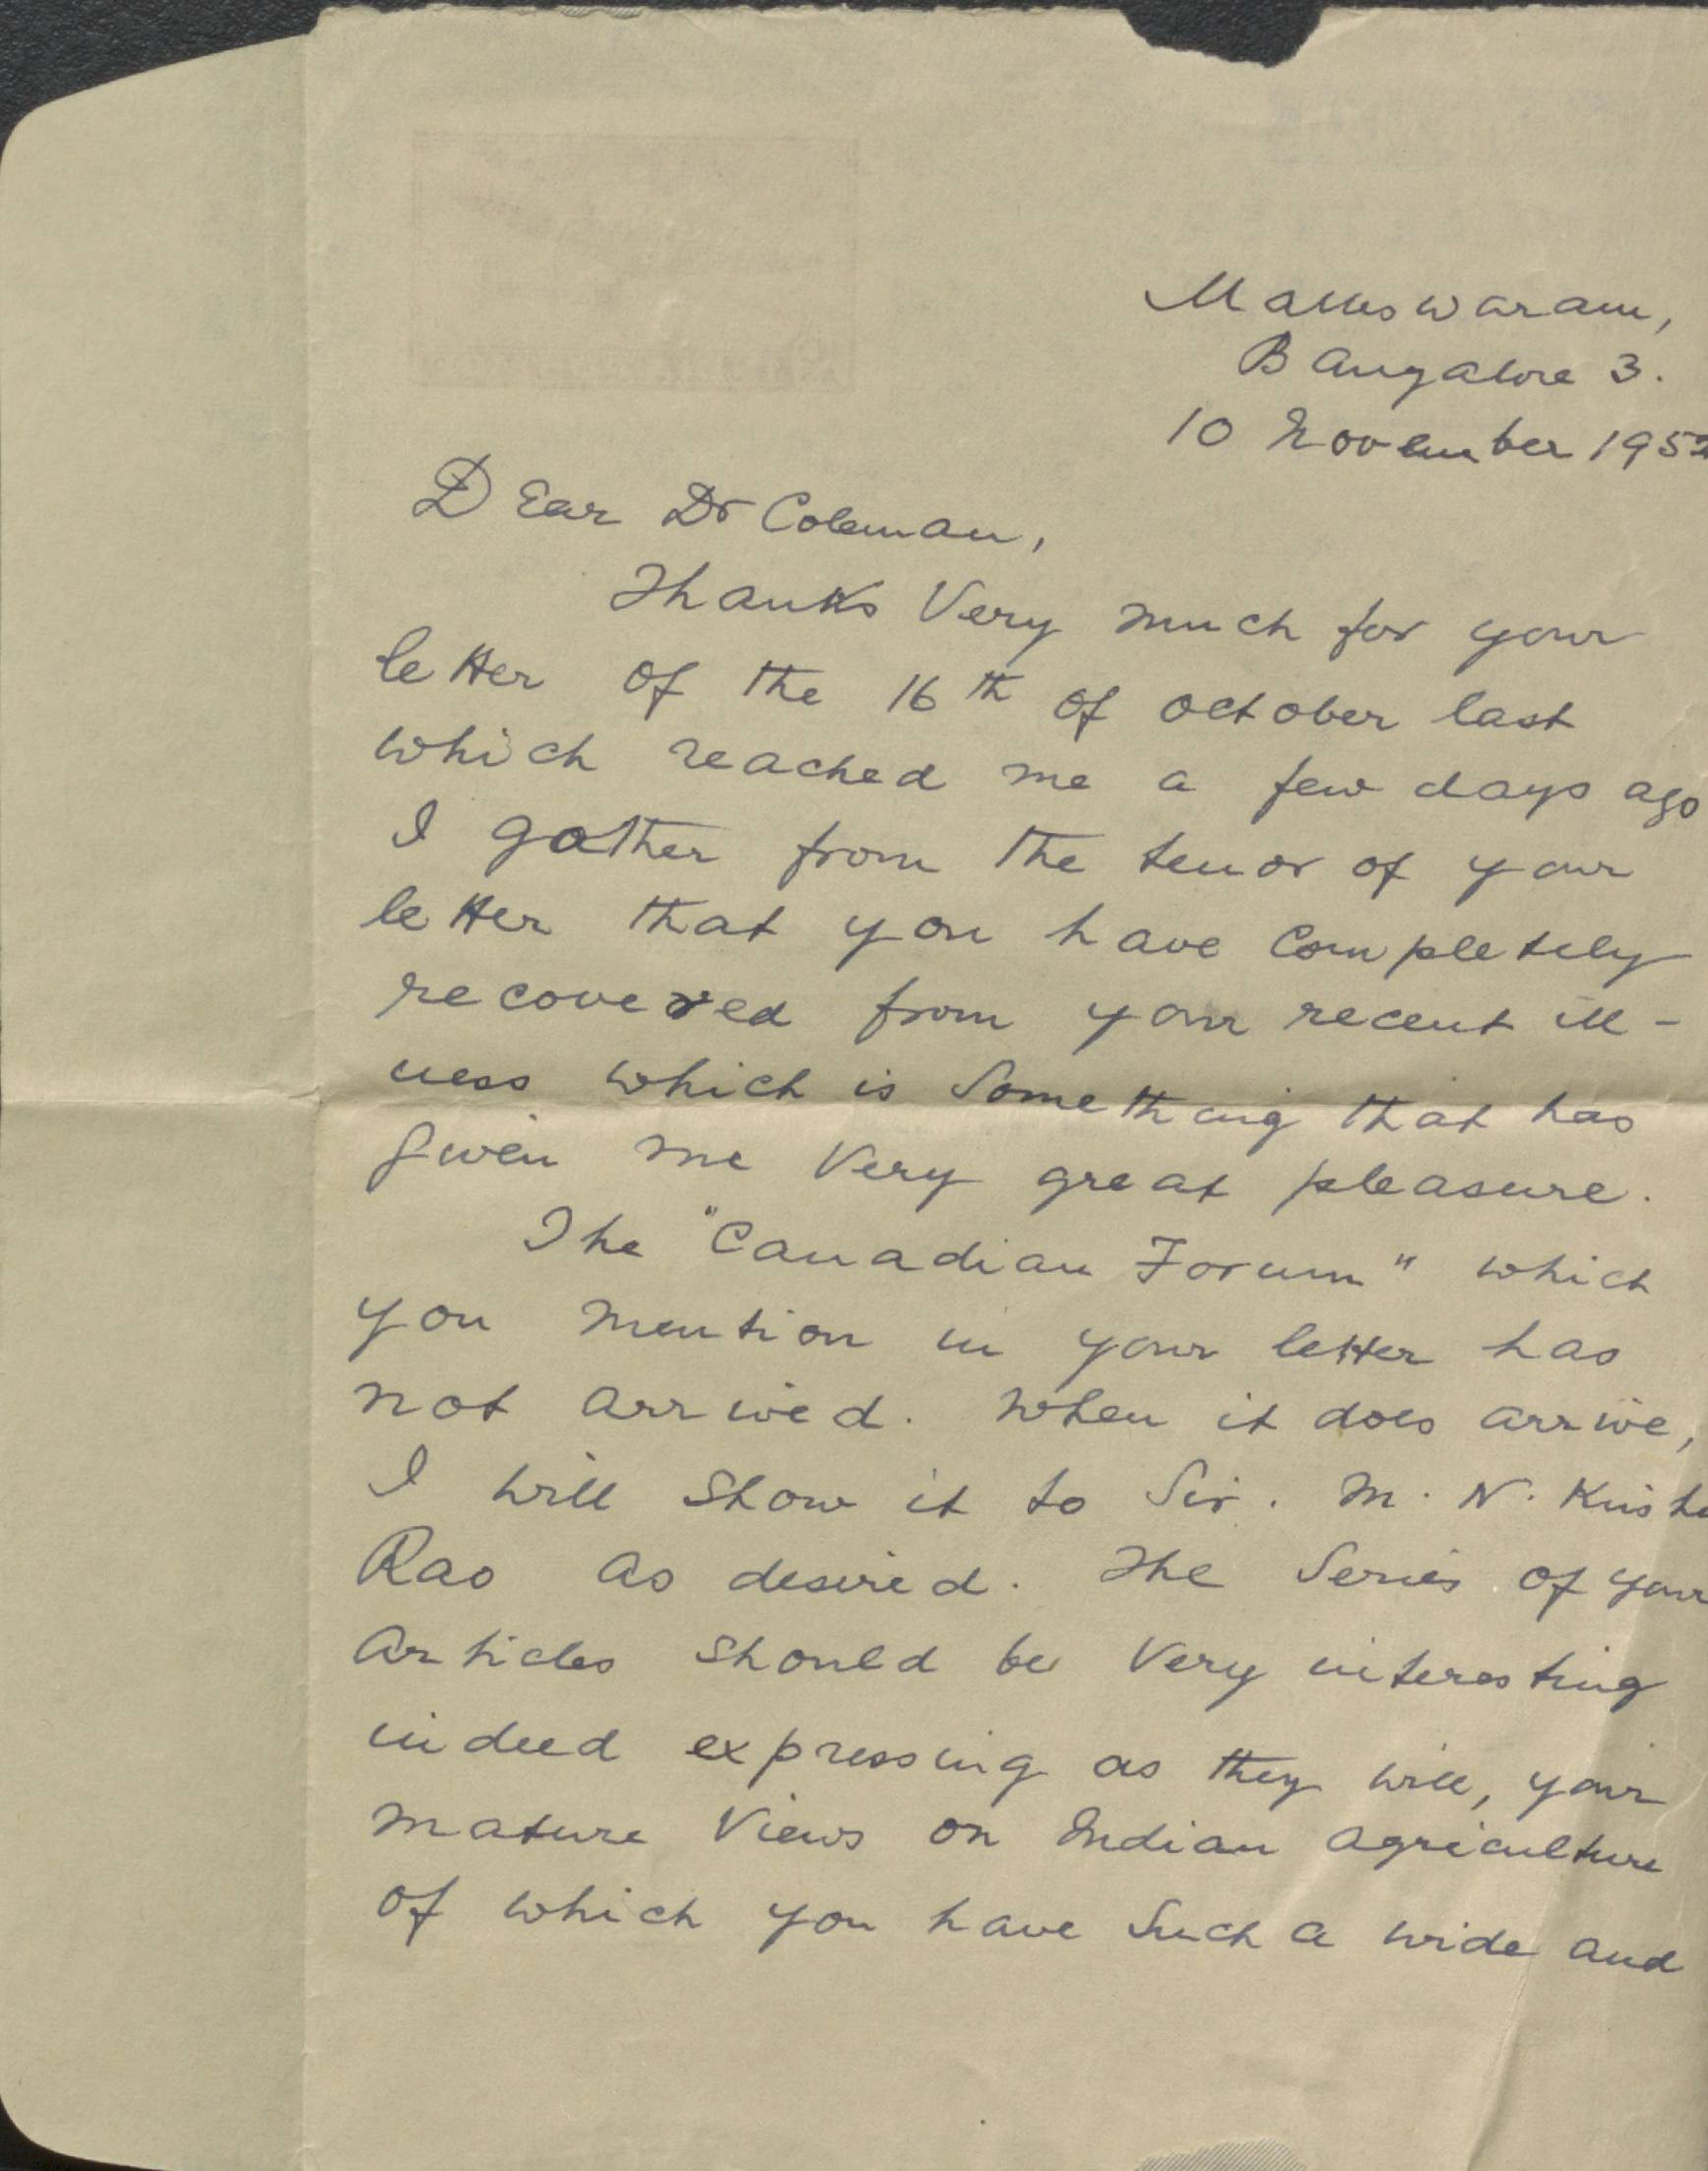 Malleswaram,
Bangalore 3.
10 November 1952
Dear Dr Coleman,
Thanks Very much for your
letter of the 16th of october last
which reached me a few days ago
I gather from the tenor of your
letter that you have Completely
recovered from your recent ill-
ness which is Something that has
given me Very great pleasure.
The "Canadian Forum" which
you mention in your letter has
not arrived. When it does arrive,
I will Show it to Sir. M. N. Krishn
Rao as desired. The Series of your
Articles Should be Very interesting
indeed expressing as they will, your
mature Views on Indian agriculture
of which you have Such a wide and